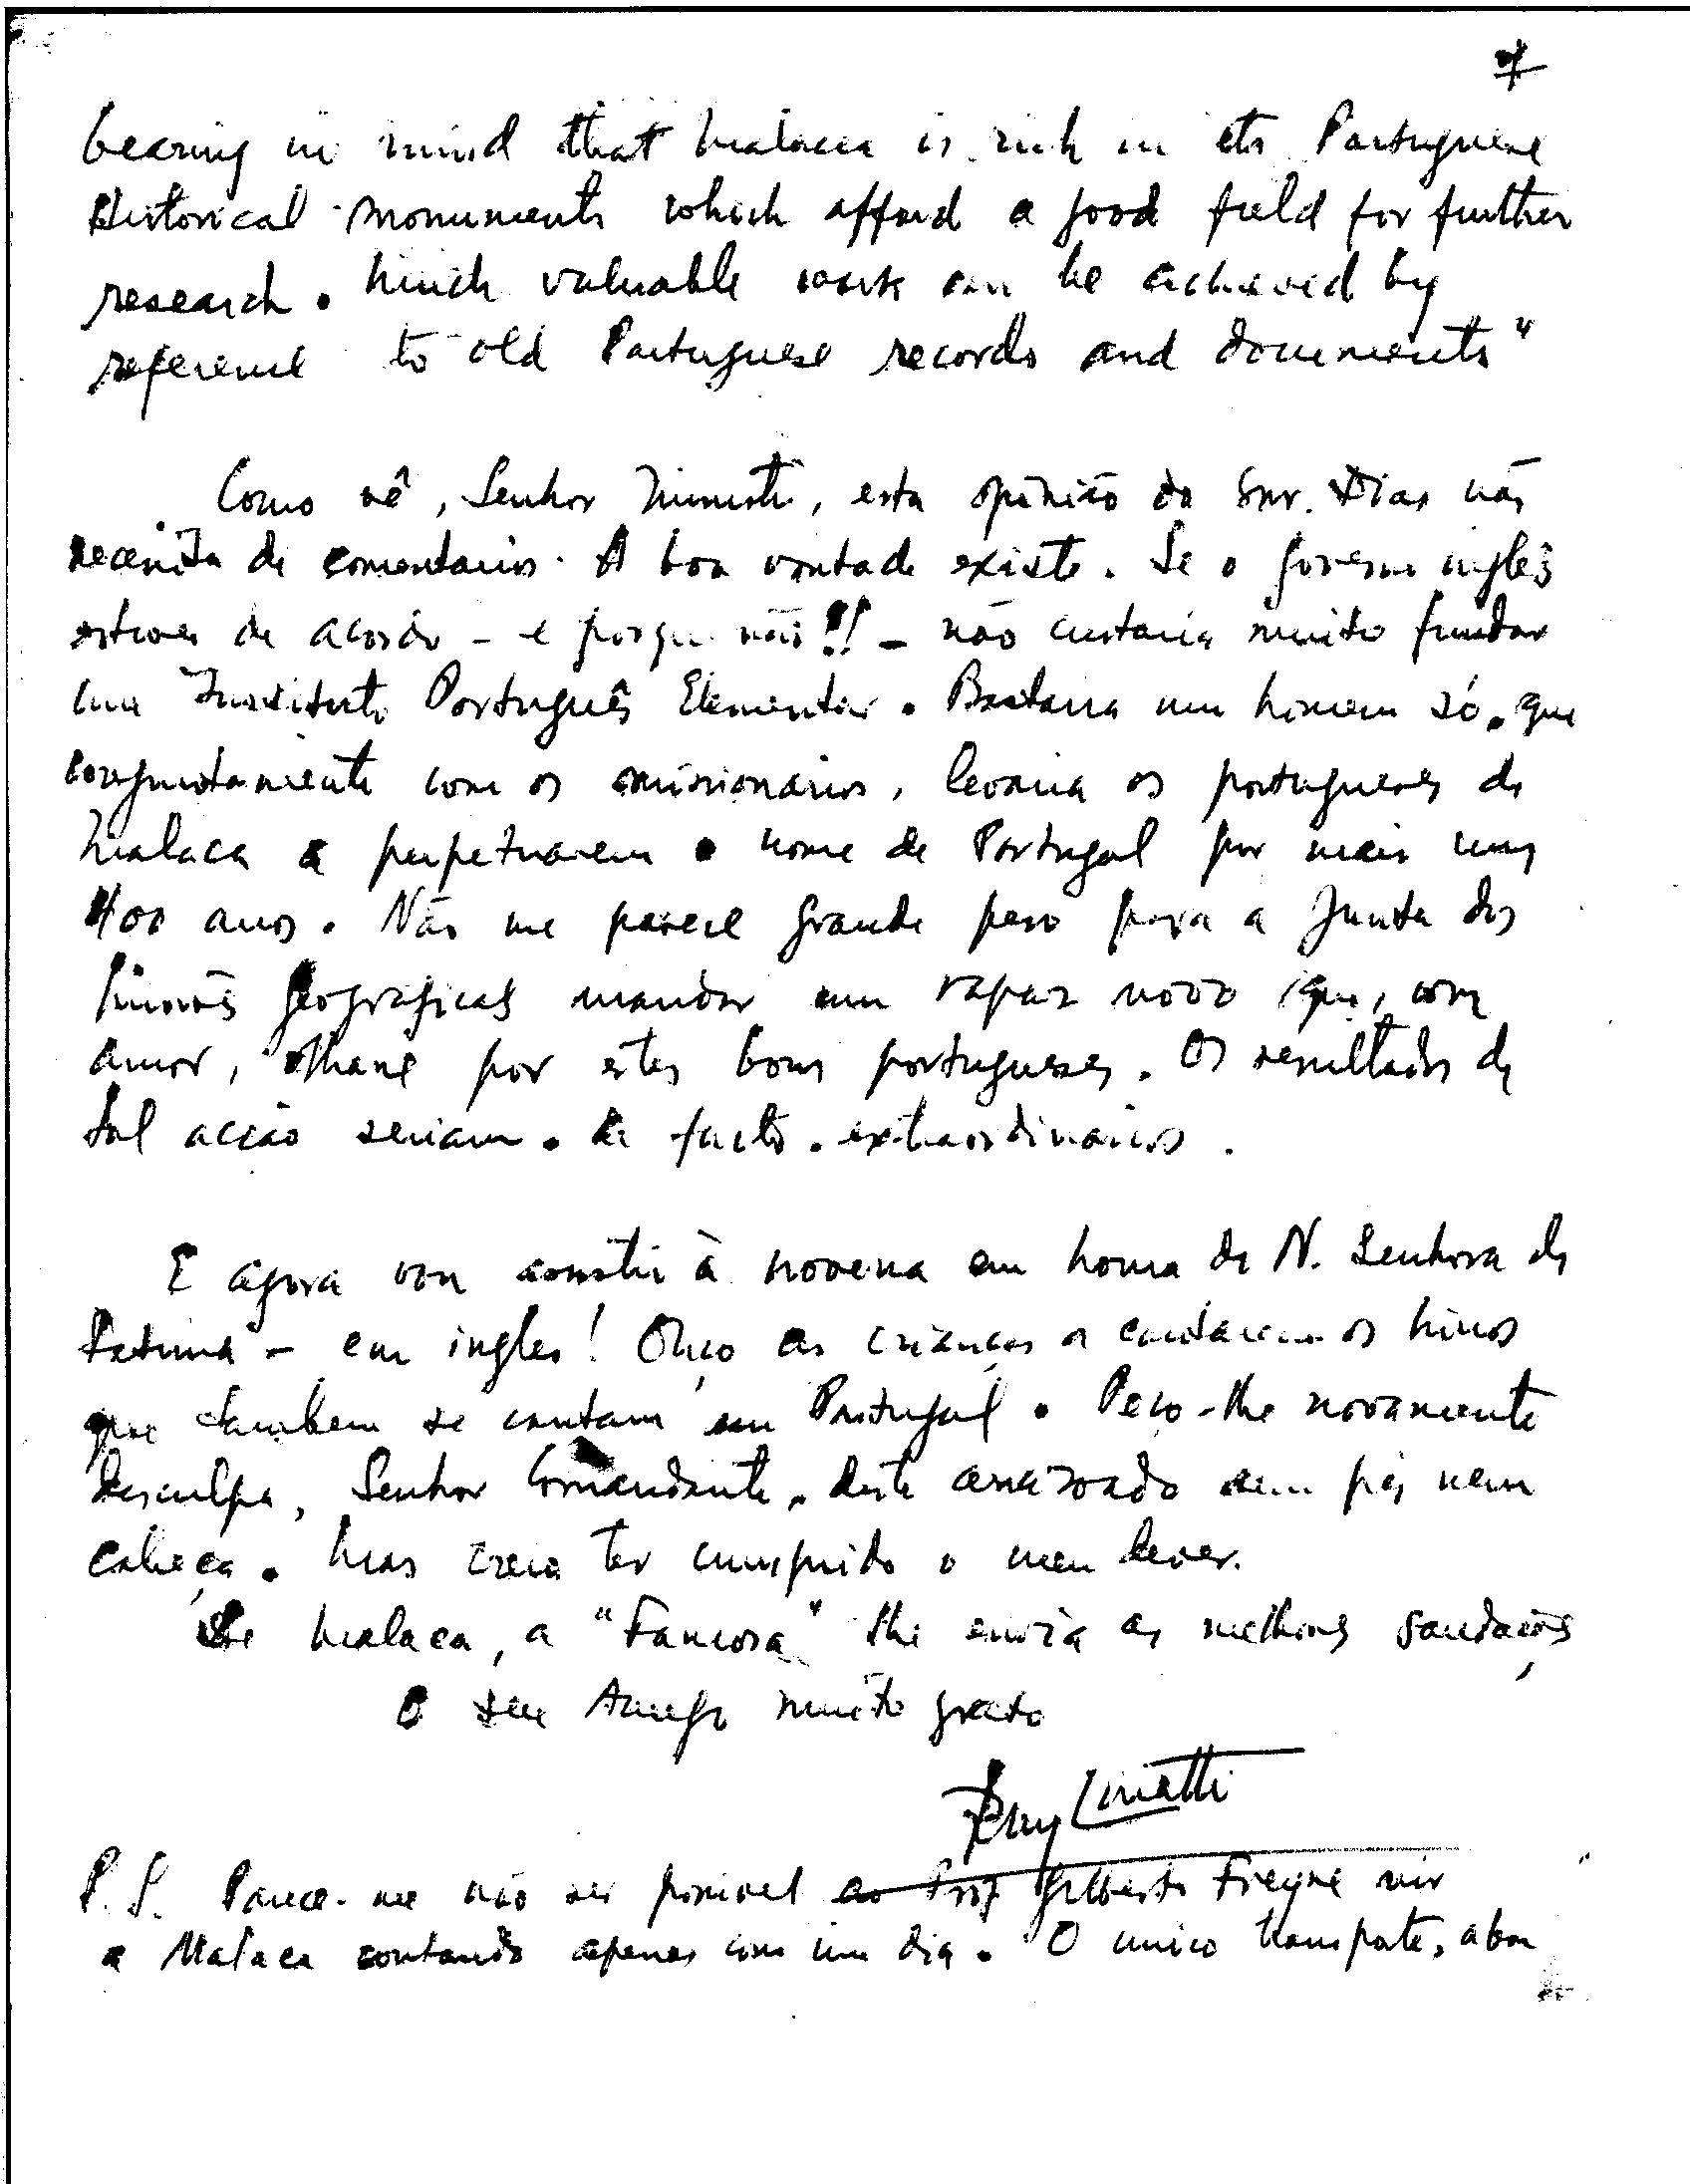 7
bearing in mind that Malacca is rich in its Portuguese
Historical monuments which afford a good field for further
research. Much valuable work can be achieved by
reference to old Portuguese records and documents"
Como vê, Senhor Ministro, esta opinião do Snr. Dias não
necessita de comentarios. A boa vontade existe. Se o governo inglês
estiver de acordo - e porque não!! - não custaria muito fundar
um Instituto Português Elementar. Bastaria um homem só, que
conjuntamente com os missionários, levaria os portugueses de
Malaca a perpetuarem o nome de Portugal por mais uns
400 anos. Não me parece grande peso para a Junta das
Missões Geograficas mandar um rapaz novo que, com
amor, olhasse por estes bons portugueses. Os resultados de
tal acção seriam, de facto, extraordinários.
E agora vou assistir à novena em honra de N. Senhora de
Fatima - em ingles! Oiço as crianças a cantarem os hinos
que tambem se cantam em Portugal. Peço-lhe novamente
desculpa, Senhor Comandante, deste arrazoado sem pés nem
cabeça. Mas creia ter cumprido o meu dever.
De Malaca, a "Famosa" lhe envia as melhores saudações
O seu Amigo muito grato
Ruy Cinatti
P.S. Parece-me não ser possivel ao Prof Gilberto Freyre vir
a Malaca contando apenas com um dia. O unico transporte, a boa